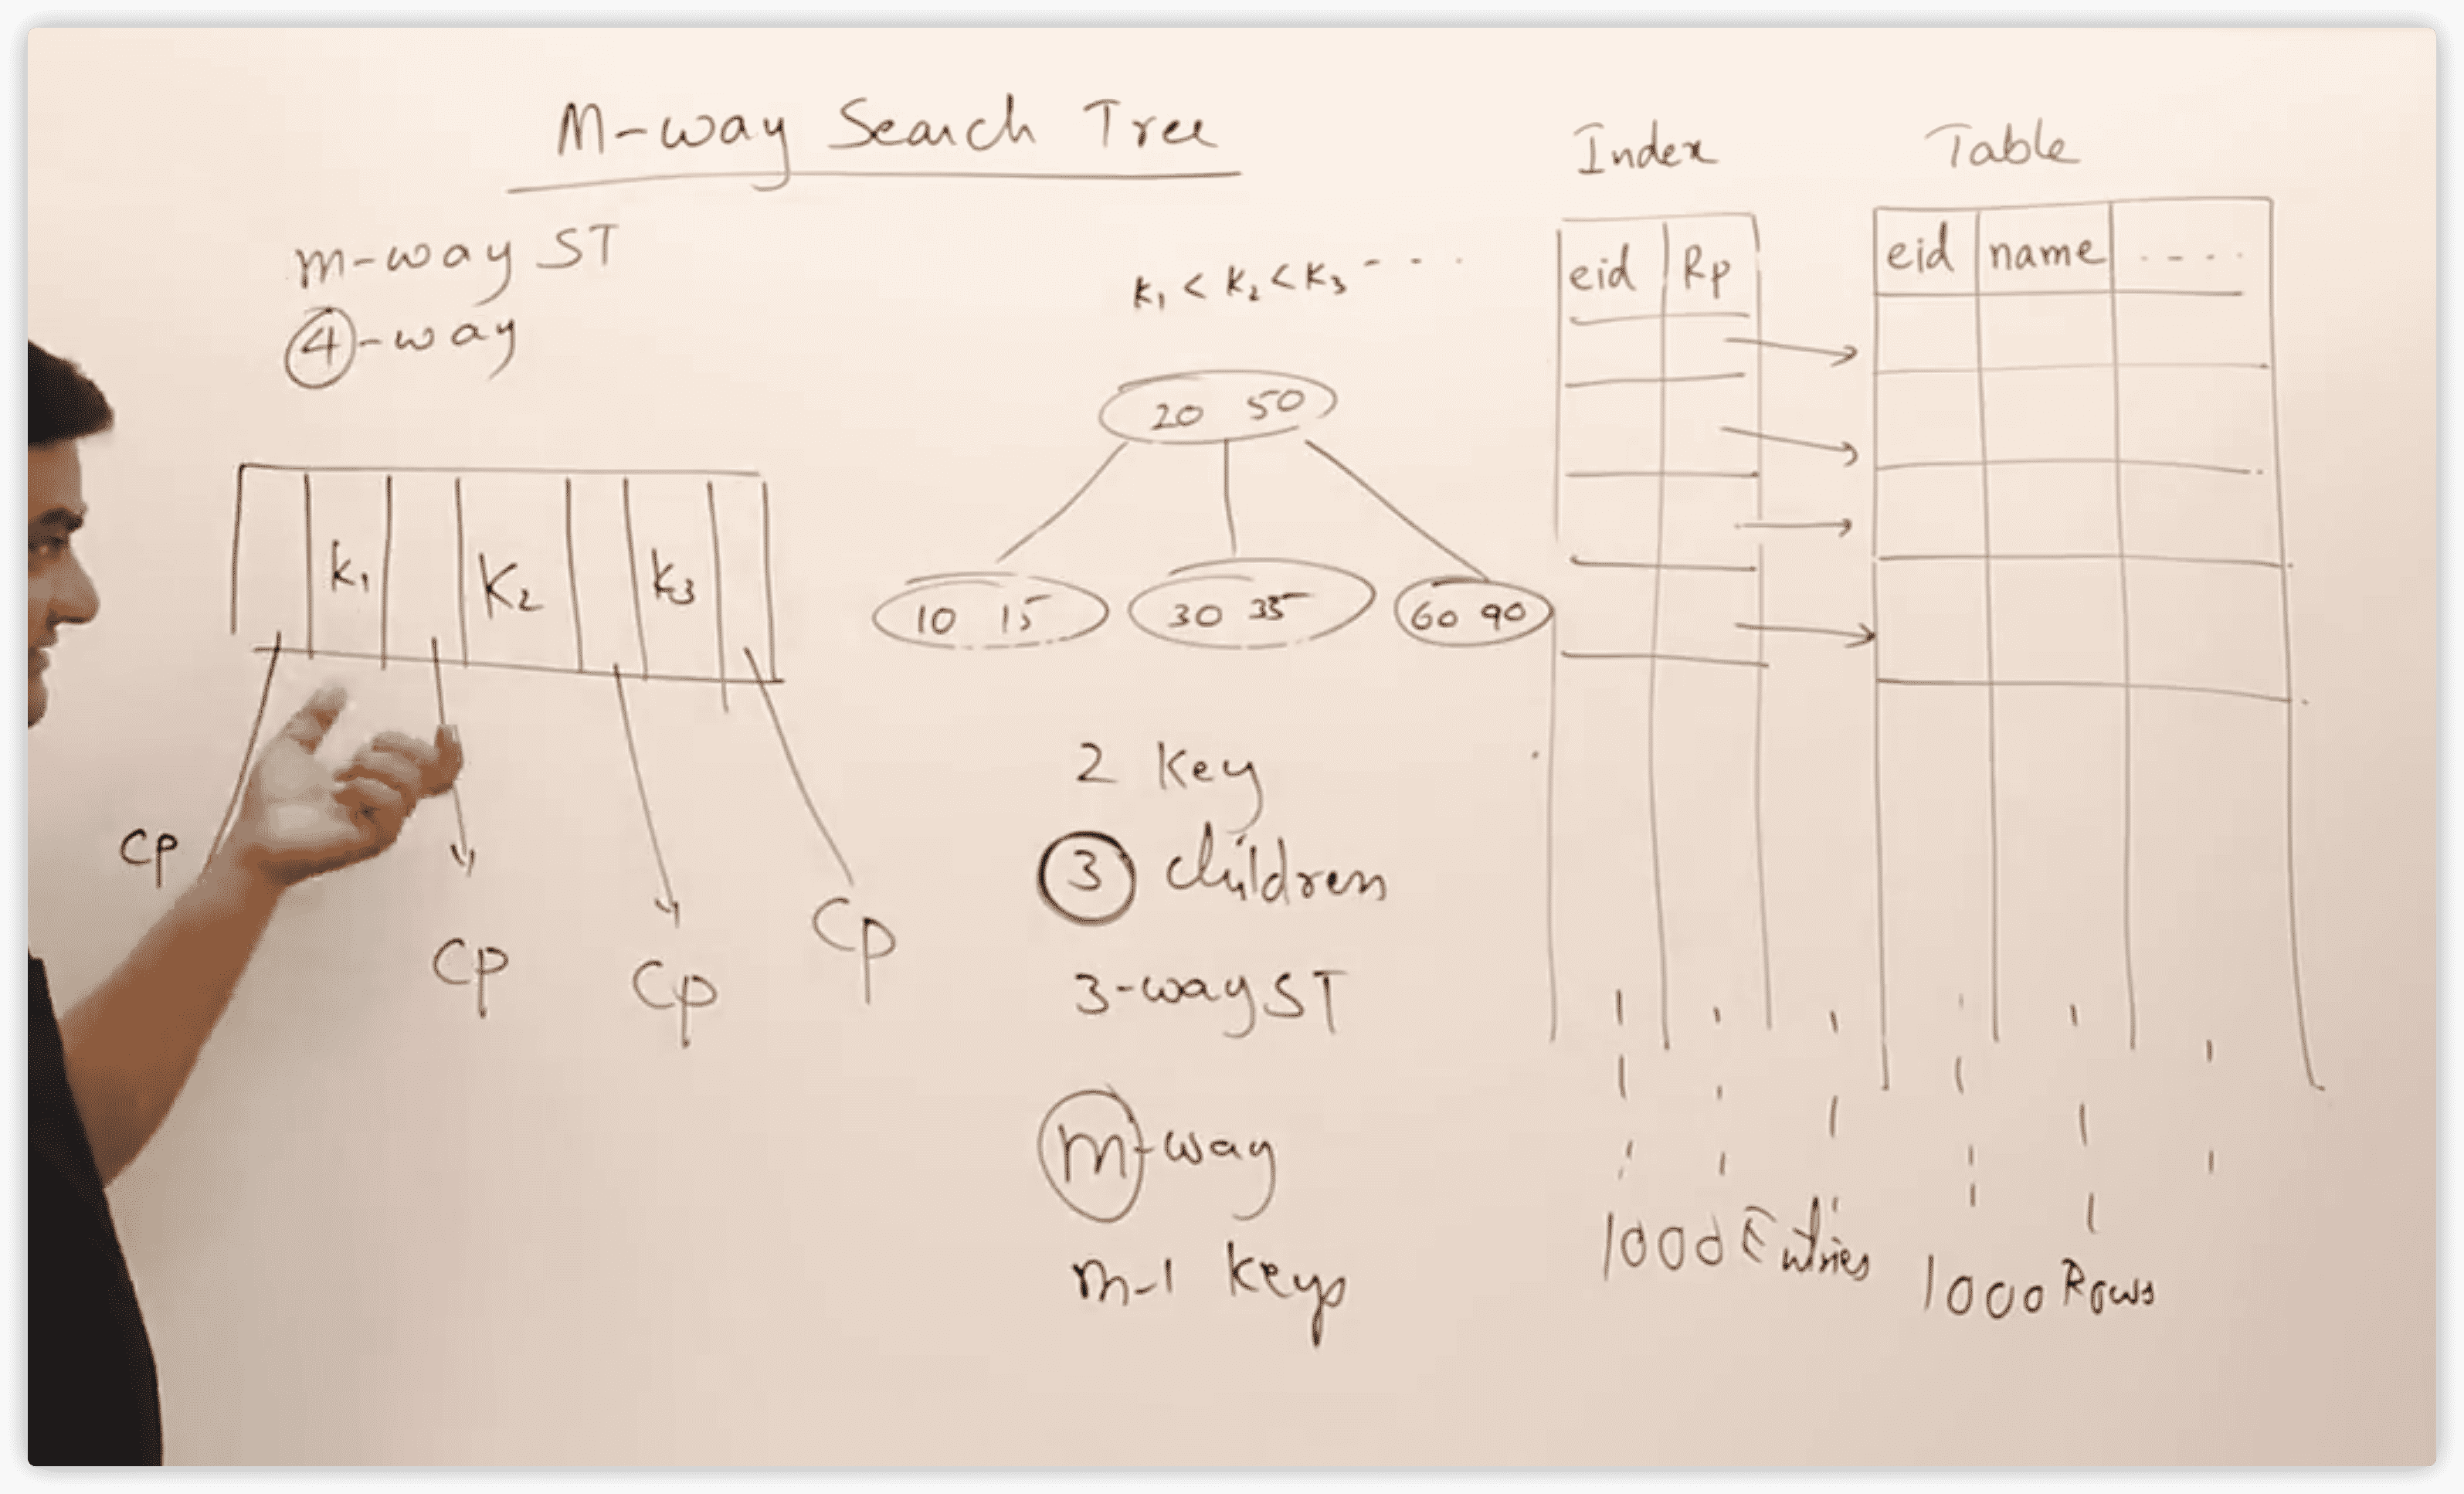 M-way Search Tree
m-way ST
4-way
K1 K2 K3
CP
CP
CP
CP
K1 < K2 < K3 - - - -
20 50
10 15
30 35
60 90
2 Key
3 children
3-way ST
m-way
m-1 Keys
Index
eid Rp
1000 Entries
Table
eid name - - - -
1000 Rows